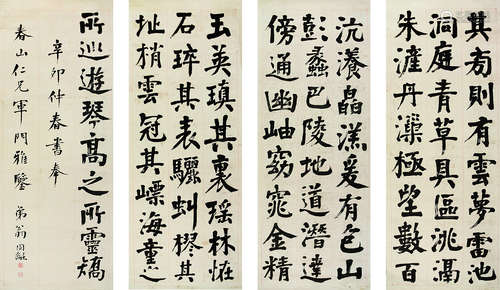 其旁則有雲夢雷池
洞庭青草具區洮滆
朱滻丹漅極望數百
沆瀁皛溔爰有包山
彭蠡巴陵地道潛逵
傍通幽岫窈窕金精
玉英瑱其裏瑤林恠
石琗其表驪虬樛其
址梢雲冠其嶛海童之
所巡遊琴高之所靈矯
辛卯仲春書奉
春山仁兄軍門雅鑒 弟翁同龢